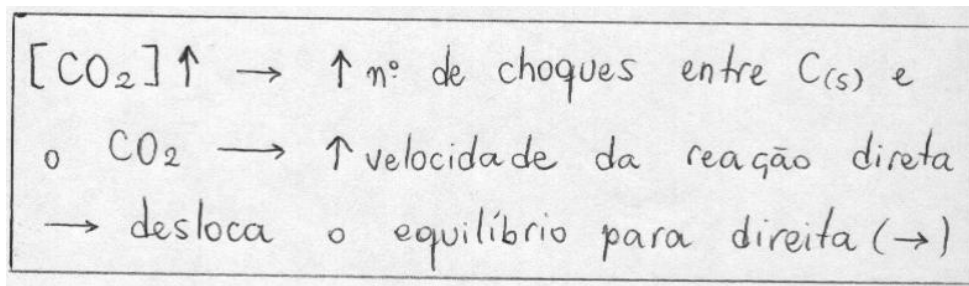 [CO₂]↑ → ↑ nº de choques entre C(s) e
o CO₂ → ↑ velocidade da reação direta
→ desloca o equilíbrio para direita (→)